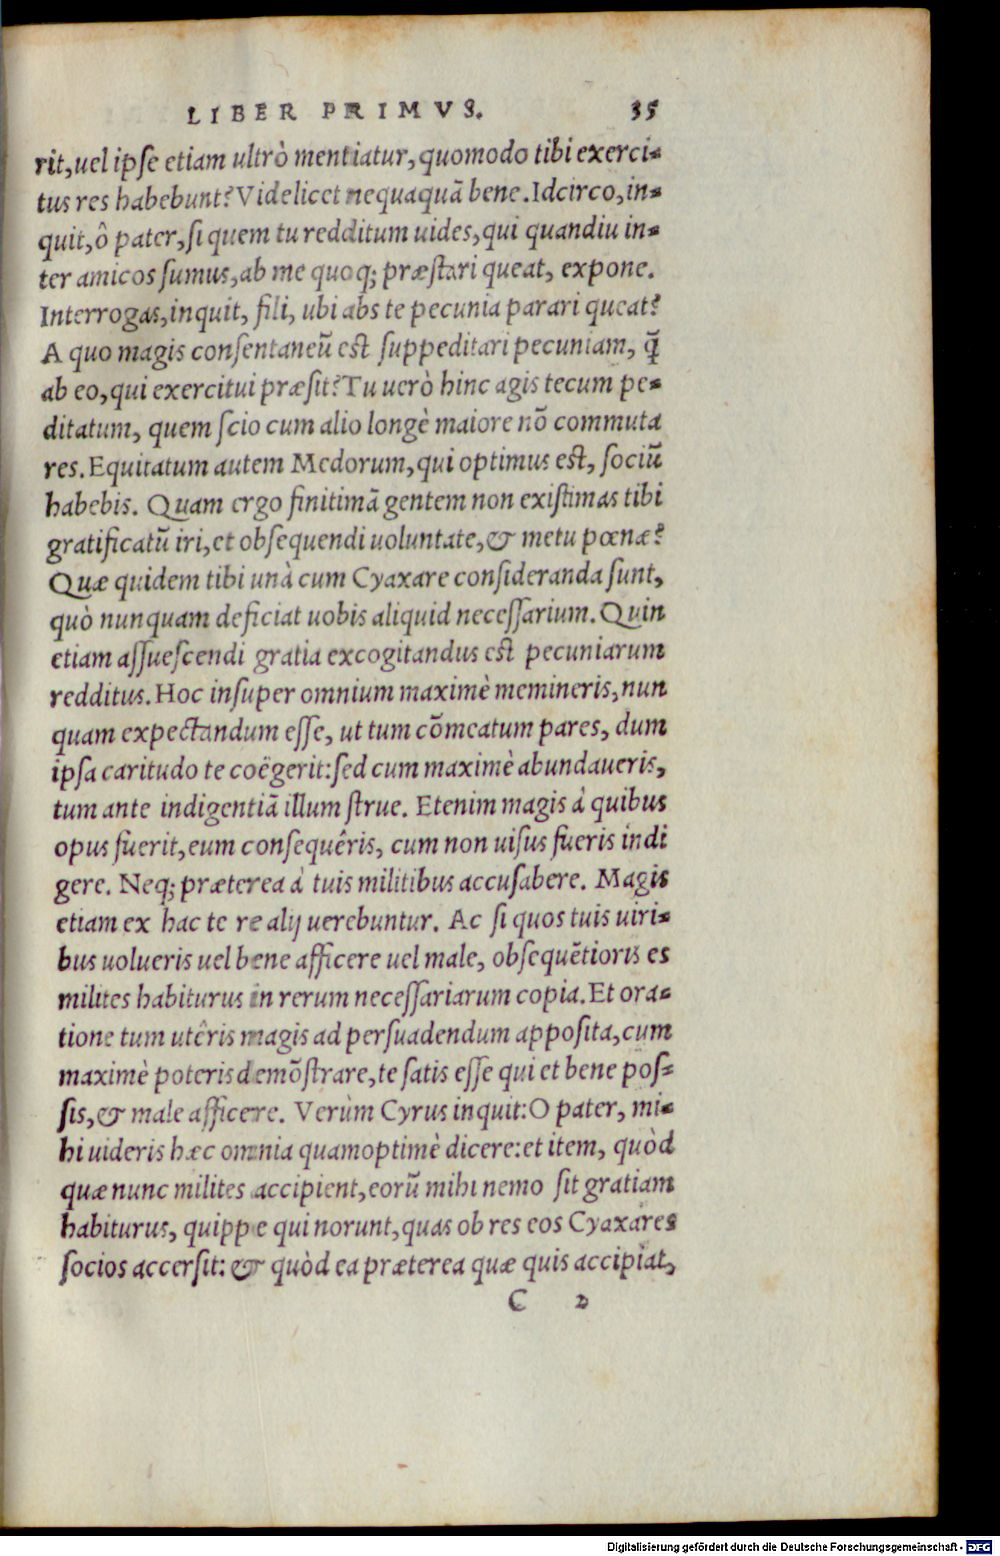 LIBER PRIMVS. 35
rit, uel ipse etiam ultrò mentiatur, quomodo tibi exerci-
tus res habebunt? Videlicet nequaquã bene. Idcirco, in-
quit, ô pater, si quem tu redditum uides, qui quandiu in-
ter amicos sumus, ab me quoq; præstari queat, expone.
Interrogas, inquit, fili, ubi abs te pecunia parari queat?
A quo magis consentaneũ est suppeditari pecuniam, q̃
ab eo, qui exercitui præsit? Tu uerò hinc agis tecum pe-
ditatum, quem scio cum alio longè maiore nõ commuta
res. Equitatum autem Medorum, qui optimus est, sociũ
habebis. Quam ergo finitimã gentem non existimas tibi
gratificatũ iri, et obsequendi uoluntate, & metu pœnæ?
Quæ quidem tibi unà cum Cyaxare consideranda sunt,
quò nunquam deficiat uobis aliquid necessarium. Quin
etiam assuescendi gratia excogitandus est pecuniarum
redditus. Hoc insuper omnium maximè memineris, nun
quam expectandum esse, ut tum cõmeatum pares, dum
ipsa caritudo te coëgerit: sed cum maximè abundaueris,
tum ante indigentiã illum strue. Etenim magis à quibus
opus fuerit, eum consequêris, cum non uisus fueris indi
gere. Neq; præterea à tuis militibus accusabere. Magis
etiam ex hac te re alij uerebuntur. Ac si quos tuis uiri-
bus uolueris uel bene afficere uel male, obsequẽtioris es
milites habiturus in rerum necessariarum copia. Et ora-
tione tum utêris magis ad persuadendum apposita, cum
maximè poteris demõstrare, te satis esse qui et bene pos-
sis, & male afficere. Verùm Cyrus inquit: O pater, mi-
hi uideris hæc omnia quamoptimè dicere: et item, quòd
quæ nunc milites accipient, eorũ mihi nemo sit gratiam
habiturus, quippe qui norunt, quas ob res eos Cyaxares
socios accersit: & quòd ea præterea quæ quis accipiat,
C 2
Digitalisierung gefördert durch die Deutsche Forschungsgemeinschaft - DFG